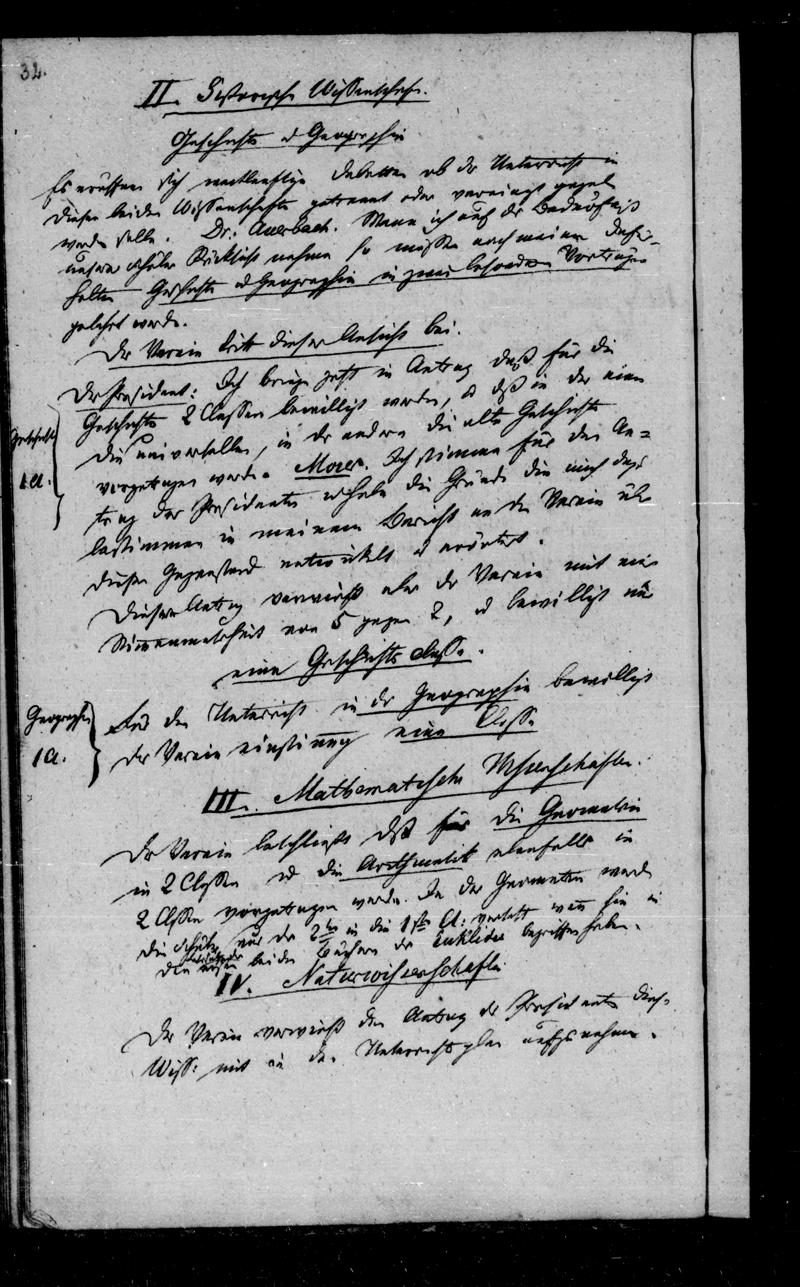 32.
II. Historische Wissenschaft.
Geschichte & Geographie
Es eröffnen sich weitläuftige Debatten ob der Unterricht in
diesen beiden Wissenschaften getrennt oder vereinigt gegeben
werden solle. Dr. Auerbach. Wenn ich auf die Bedürfniß
unserer Schüler Rücksicht nehme so müssen nach meinem Dafür-
halten Geschichte & Geographie in zwei besondern Vorträgen
gelehrt werden.
Der Verein tritt dieser Ansicht bei.
Der President: Ich bringe jetzt in Antrag daß für die
Geschichte 2 Classen bewilligt werden, & daß in der einen
die universelle, in der andern die alte Geschichte
vorgetragen werde. Moser. Ich stimme für den An=
trag des Presidenten & habe die Gründe die mich dazu
bestimmen in meinem Bericht an den Verein über
diesen Gegenstand entwickelt & erörtert.
Diesen Antrag verwirft aber der Verein mit einer
Stimmenmehrheit von 5 gegen 2, & bewilligt nur
eine Geschichts classe.
Geschichte
1 Cl.
Geographie
1 Cl.
Für den Unterricht in der Geographie bewilligt
der Verein einstimmig eine Classe
III. Mathematische Wissenschaften.
Der Verein beschließt daß für die Geometrie
in 2 Classen & die Arithmetik ebenfalls in
2 Classen vorgetragen werde. In der Geometrie werden
die Schüler nur der 2ten in die 1ste Cl. versetzt wenn sie in
die ersten beiden Bücher des Euklides begriffen haben.
IV. Naturwissenschaften
Der Verein verwirft den Antrag des Presidenten diese
Wiss: mit in den Unterrichtsplan aufzunehmen.